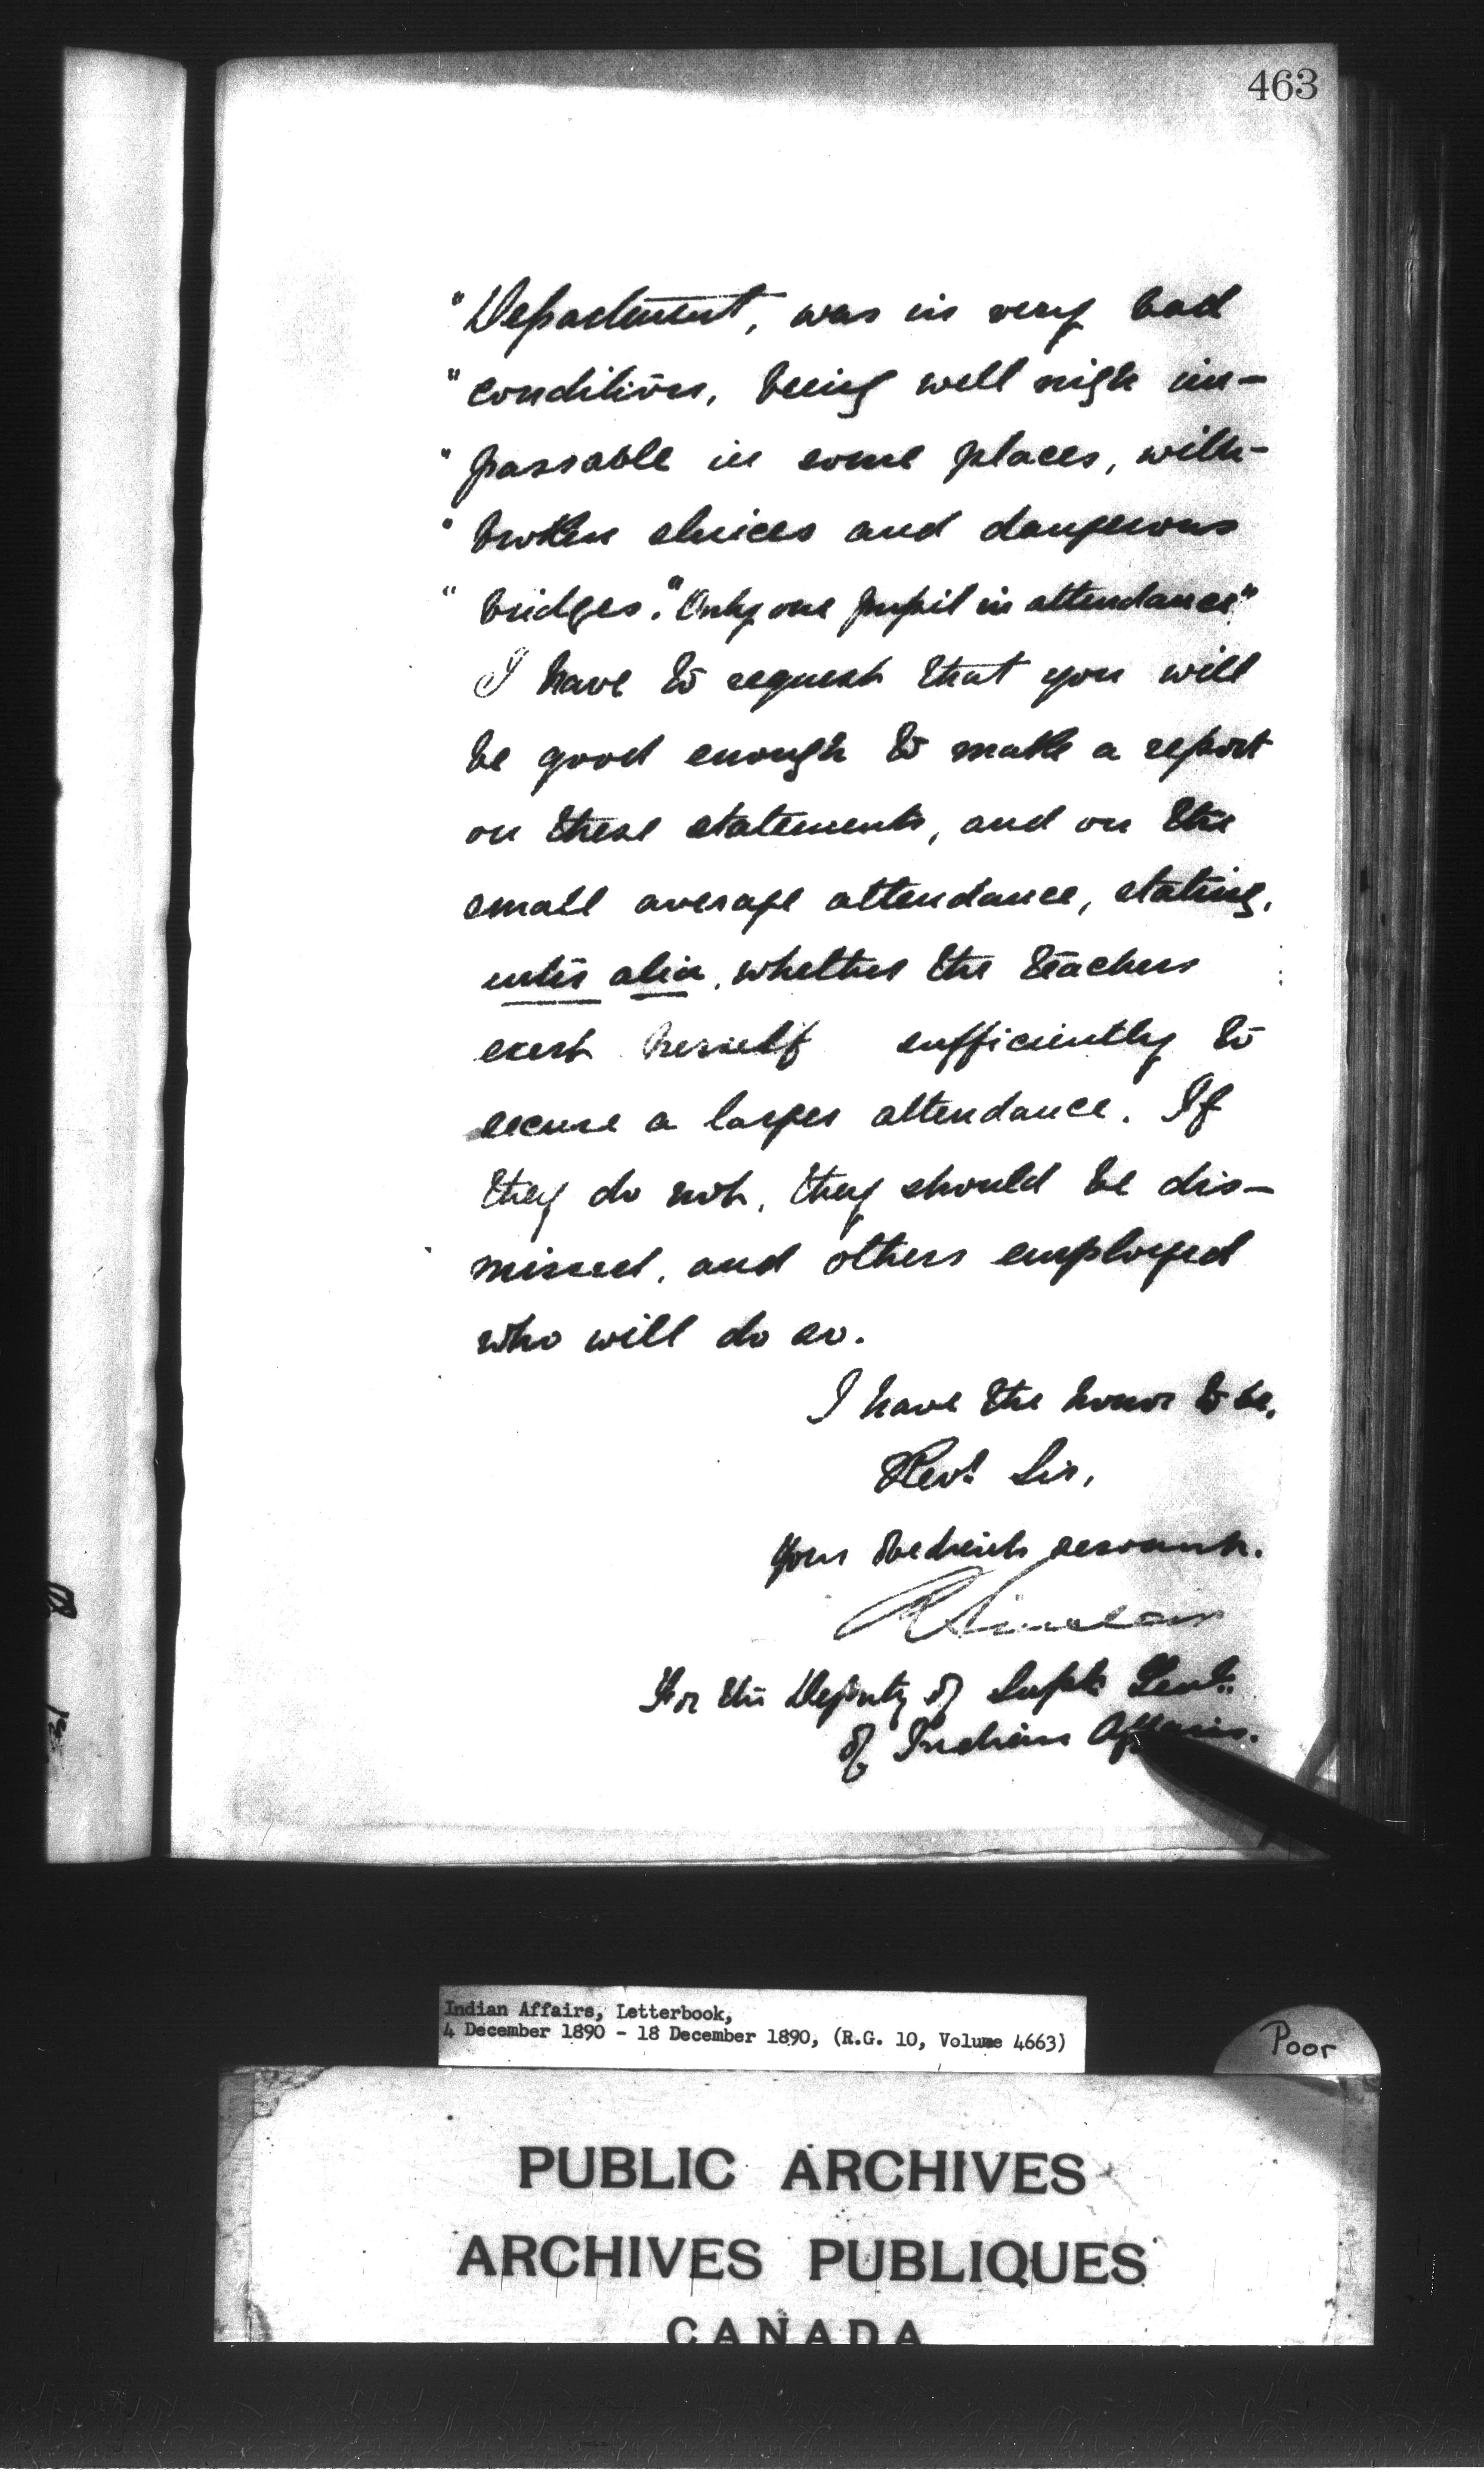 463
"Department, was in very bad
"condition, being well nigh im-
"passable in some places, with
"broken sluices and dangerous
"bridges." "Only one pupil in attendance"
I have to request that you will
be good enough to make a report
on these statements, and on the
small average attendance, stating,
inter alia, whether the teachers
exert herself sufficiently to
secure a larger attendance. If
they do not, they should be dis-
missed, and others employed
who will do so.
I have the honor to be,
Revd. Sir,
Your obedient servant.
R Sinclair
For the Deputy of Supt. Genl.
of Indian Affairs.
Indian Affairs, Letterbook,
4 December 1890 - 18 December 1890, (R.G. 10, Volume 4663)
Poor
PUBLIC ARCHIVES
ARCHIVES PUBLIQUES
CANADA